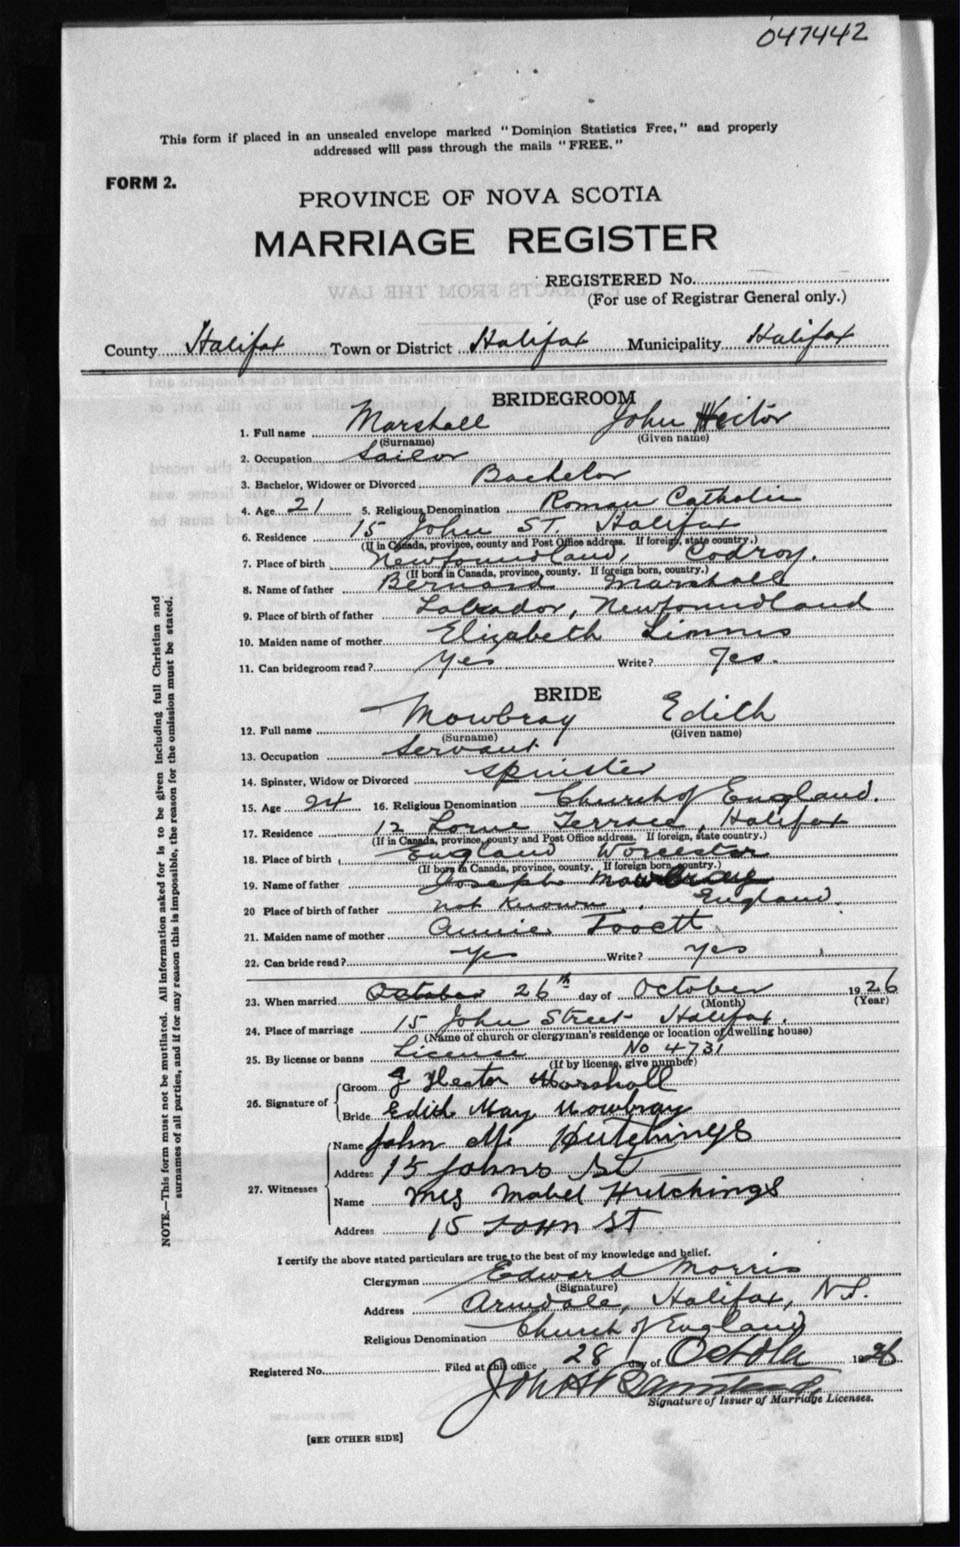 047442
This form if placed in an unsealed envelope marked "Dominion Statistics Free," and properly
addressed will pass through the mails "FREE."
FORM 2.
PROVINCE OF NOVA SCOTIA
MARRIAGE REGISTER
REGISTERED No.
(For use of Registrar General only.)
County Halifax Town or District Halifax Municipality Halifax
BRIDEGROOM
1. Full name Marshall John Hector
(Surname) (Given name)
2. Occupation Sailor
3. Bachelor, Widower or Divorced Bachelor
4. Age 21 5. Religious Denomination Roman Catholic
6. Residence 15 John St. Halifax
(If in Canada, province, county and Post Office address. If foreign, state country.)
7. Place of birth Newfoundland, Codroy.
(If born in Canada, province, county. If foreign born, country.)
8. Name of father Bernard Marshall
9. Place of birth of father Labrador, Newfoundland
10. Maiden name of mother Elizabeth
11. Can bridegroom read? Yes Write? Yes.
BRIDE
12. Full name Mowbray Edith
(Surname) (Given name)
13. Occupation Servant
14. Spinster, Widow or Divorced Spinster
15. Age 24 16. Religious Denomination Church of England.
17. Residence 12 Lorne Terrace, Halifax
(If in Canada, province, county and Post Office address. If foreign, state country.)
18. Place of birth England Worcester
(If born in Canada, province, county. If foreign born, country.)
19. Name of father Joseph Mowbray
20 Place of birth of father not Known, England.
21. Maiden name of mother Annie
22. Can bride read? Yes Write? Yes
23. When married October 26th day of October 1926
(Month) (Year)
24. Place of marriage 15 John Street Halifax.
(Name of church or clergyman's residence or location of dwelling house)
25. By license or banns License No 4731
(If by license, give number)
26. Signature of
Groom J Hector Marshall
Bride Edith May Mowbray
27. Witnesses
Name John M. Hutchings
Address 15 Johns St
Name Mrs Mabel Hutchings
Address 15 John St
I certify the above stated particulars are true to the best of my knowledge and belief.
Clergyman Edward Morris
(Signature)
Address Armdale, Halifax, N.S.
Religious Denomination Church of England
Registered No. Filed at this office 28 day of October 1926
John
Signature of Issuer of Marriage Licenses.
[SEE OTHER SIDE]
NOTE.—This form must not be mutilated. All information asked for is to be given including full Christian and
surnames of all parties, and if for any reason this is impossible, the reason for the omission must be stated.